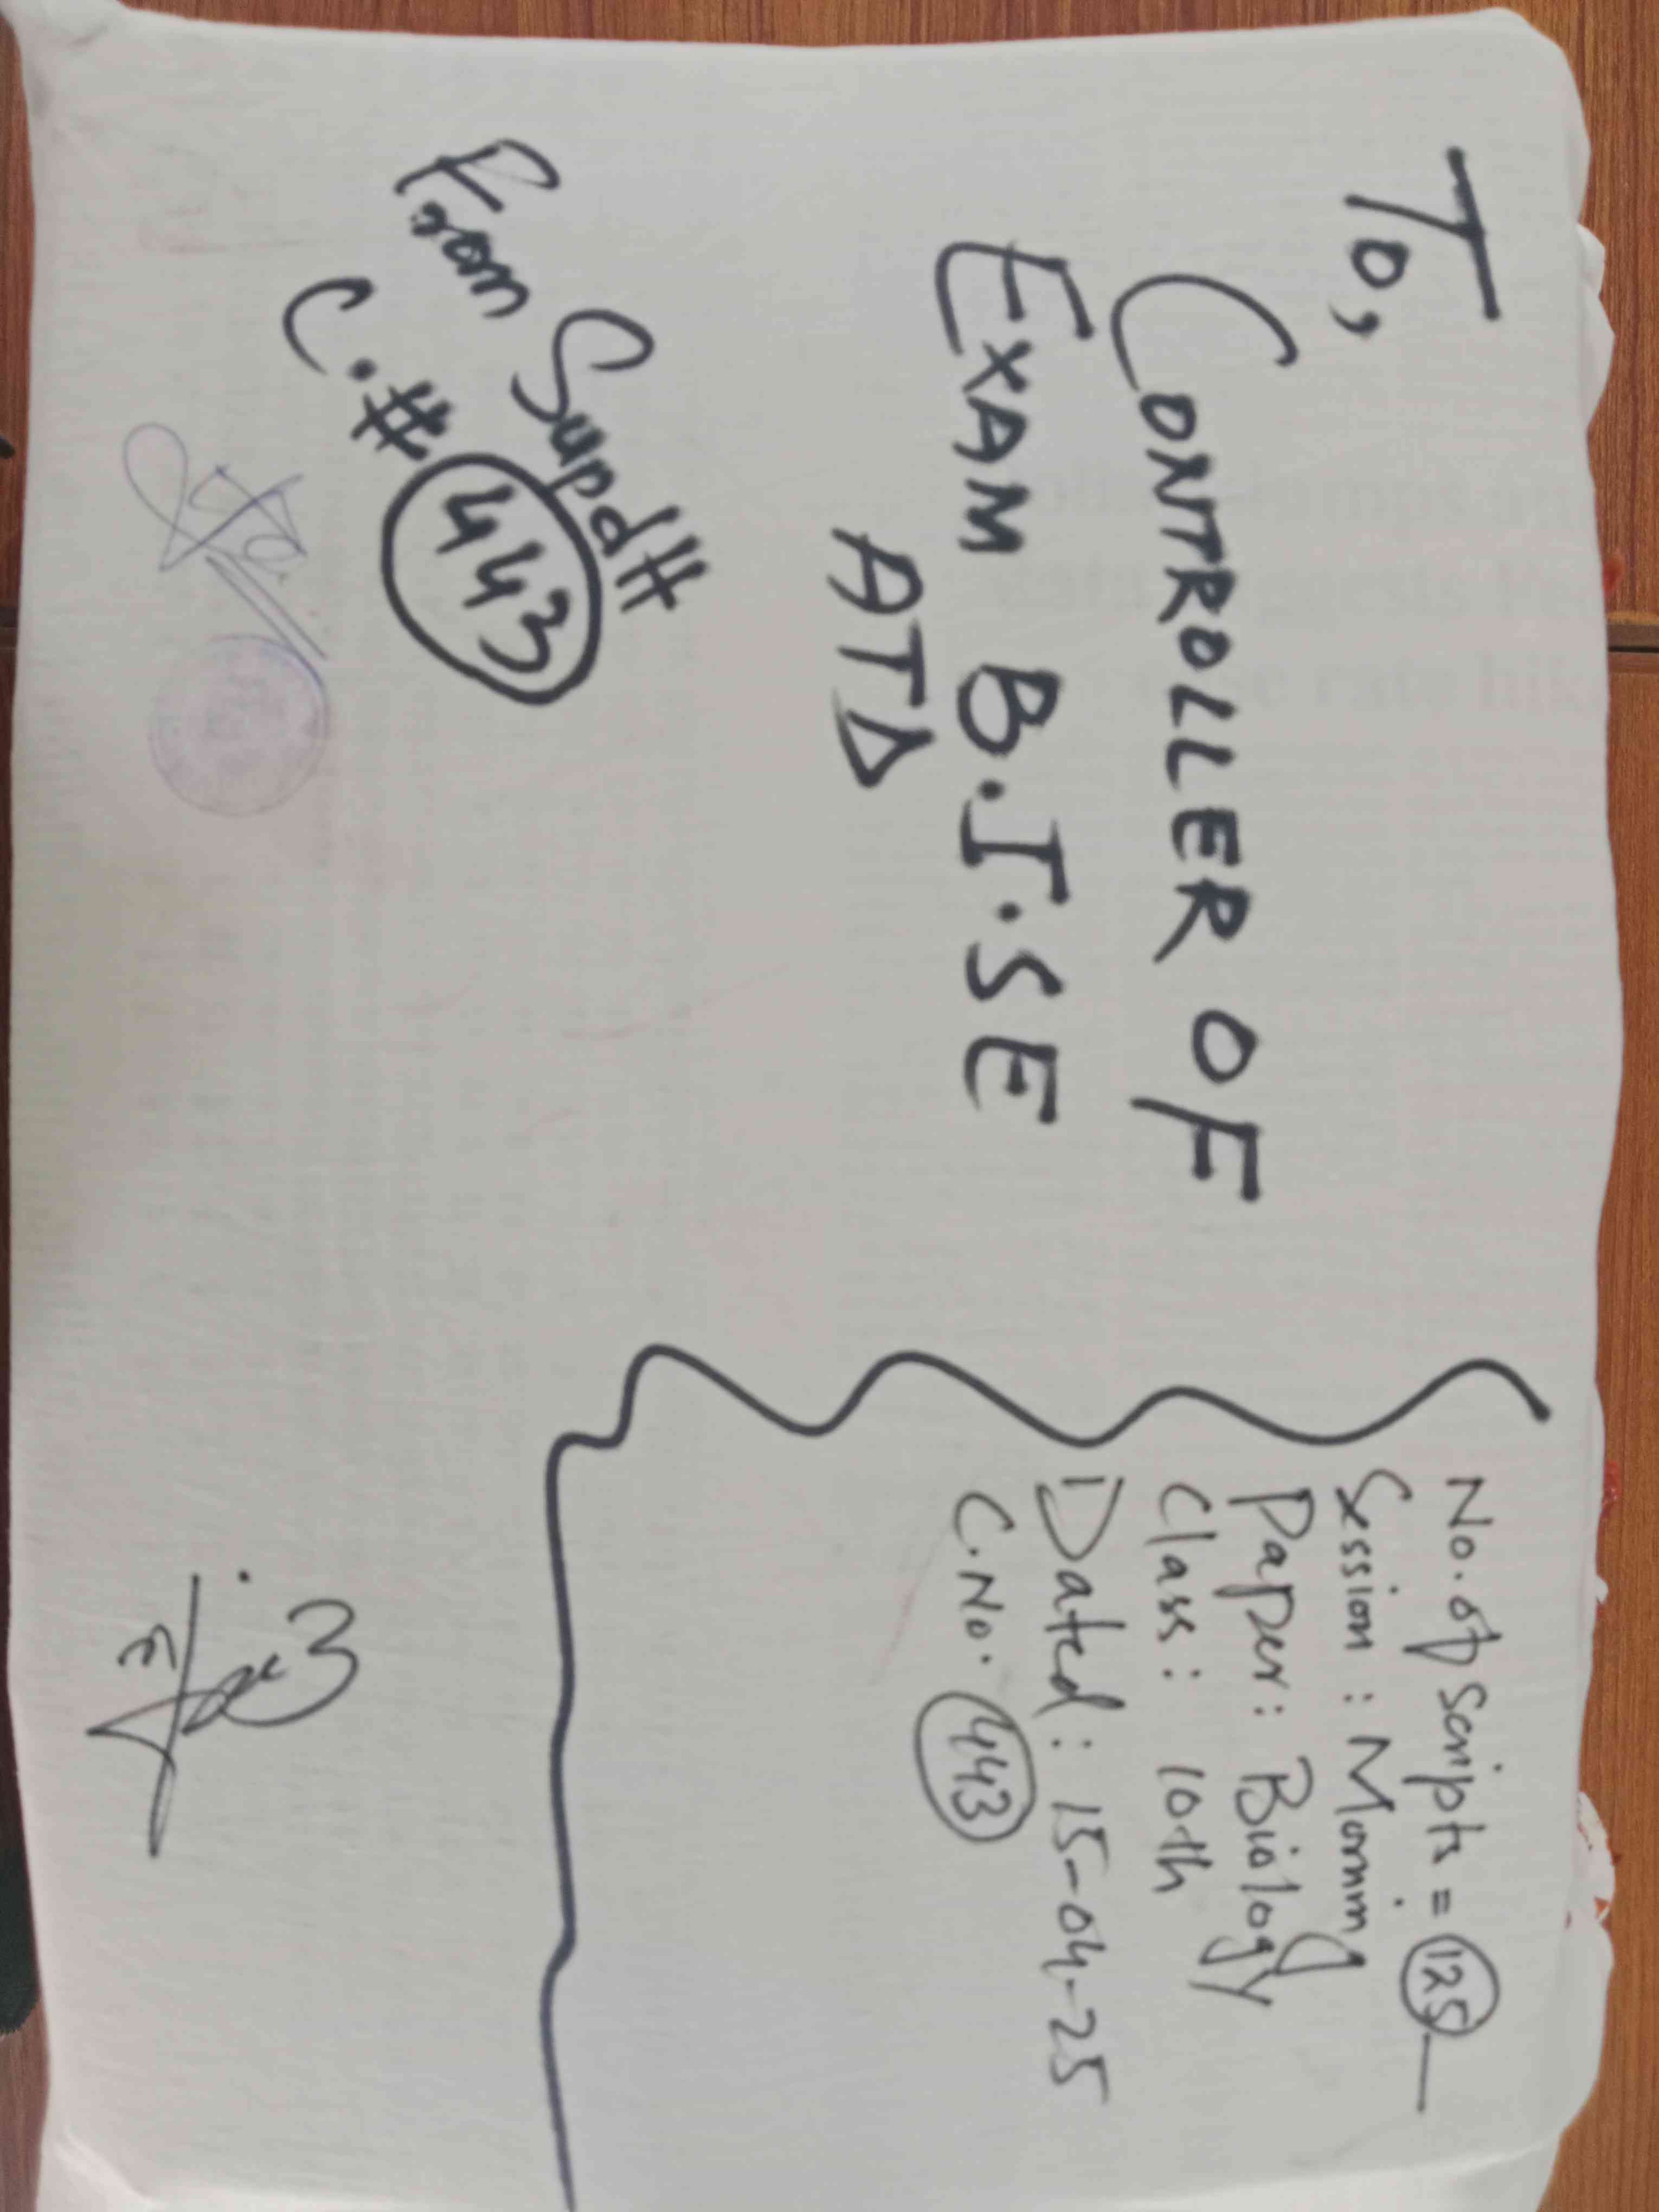 To,
CONTROLLER OF
EXAM B.I.SE
ATD
From Supdtt
C.# 443
No. of Scripts = 125
Session : Morning
Paper: Biology
Class: 10th
Dated: 15-04-25
C.No. 443